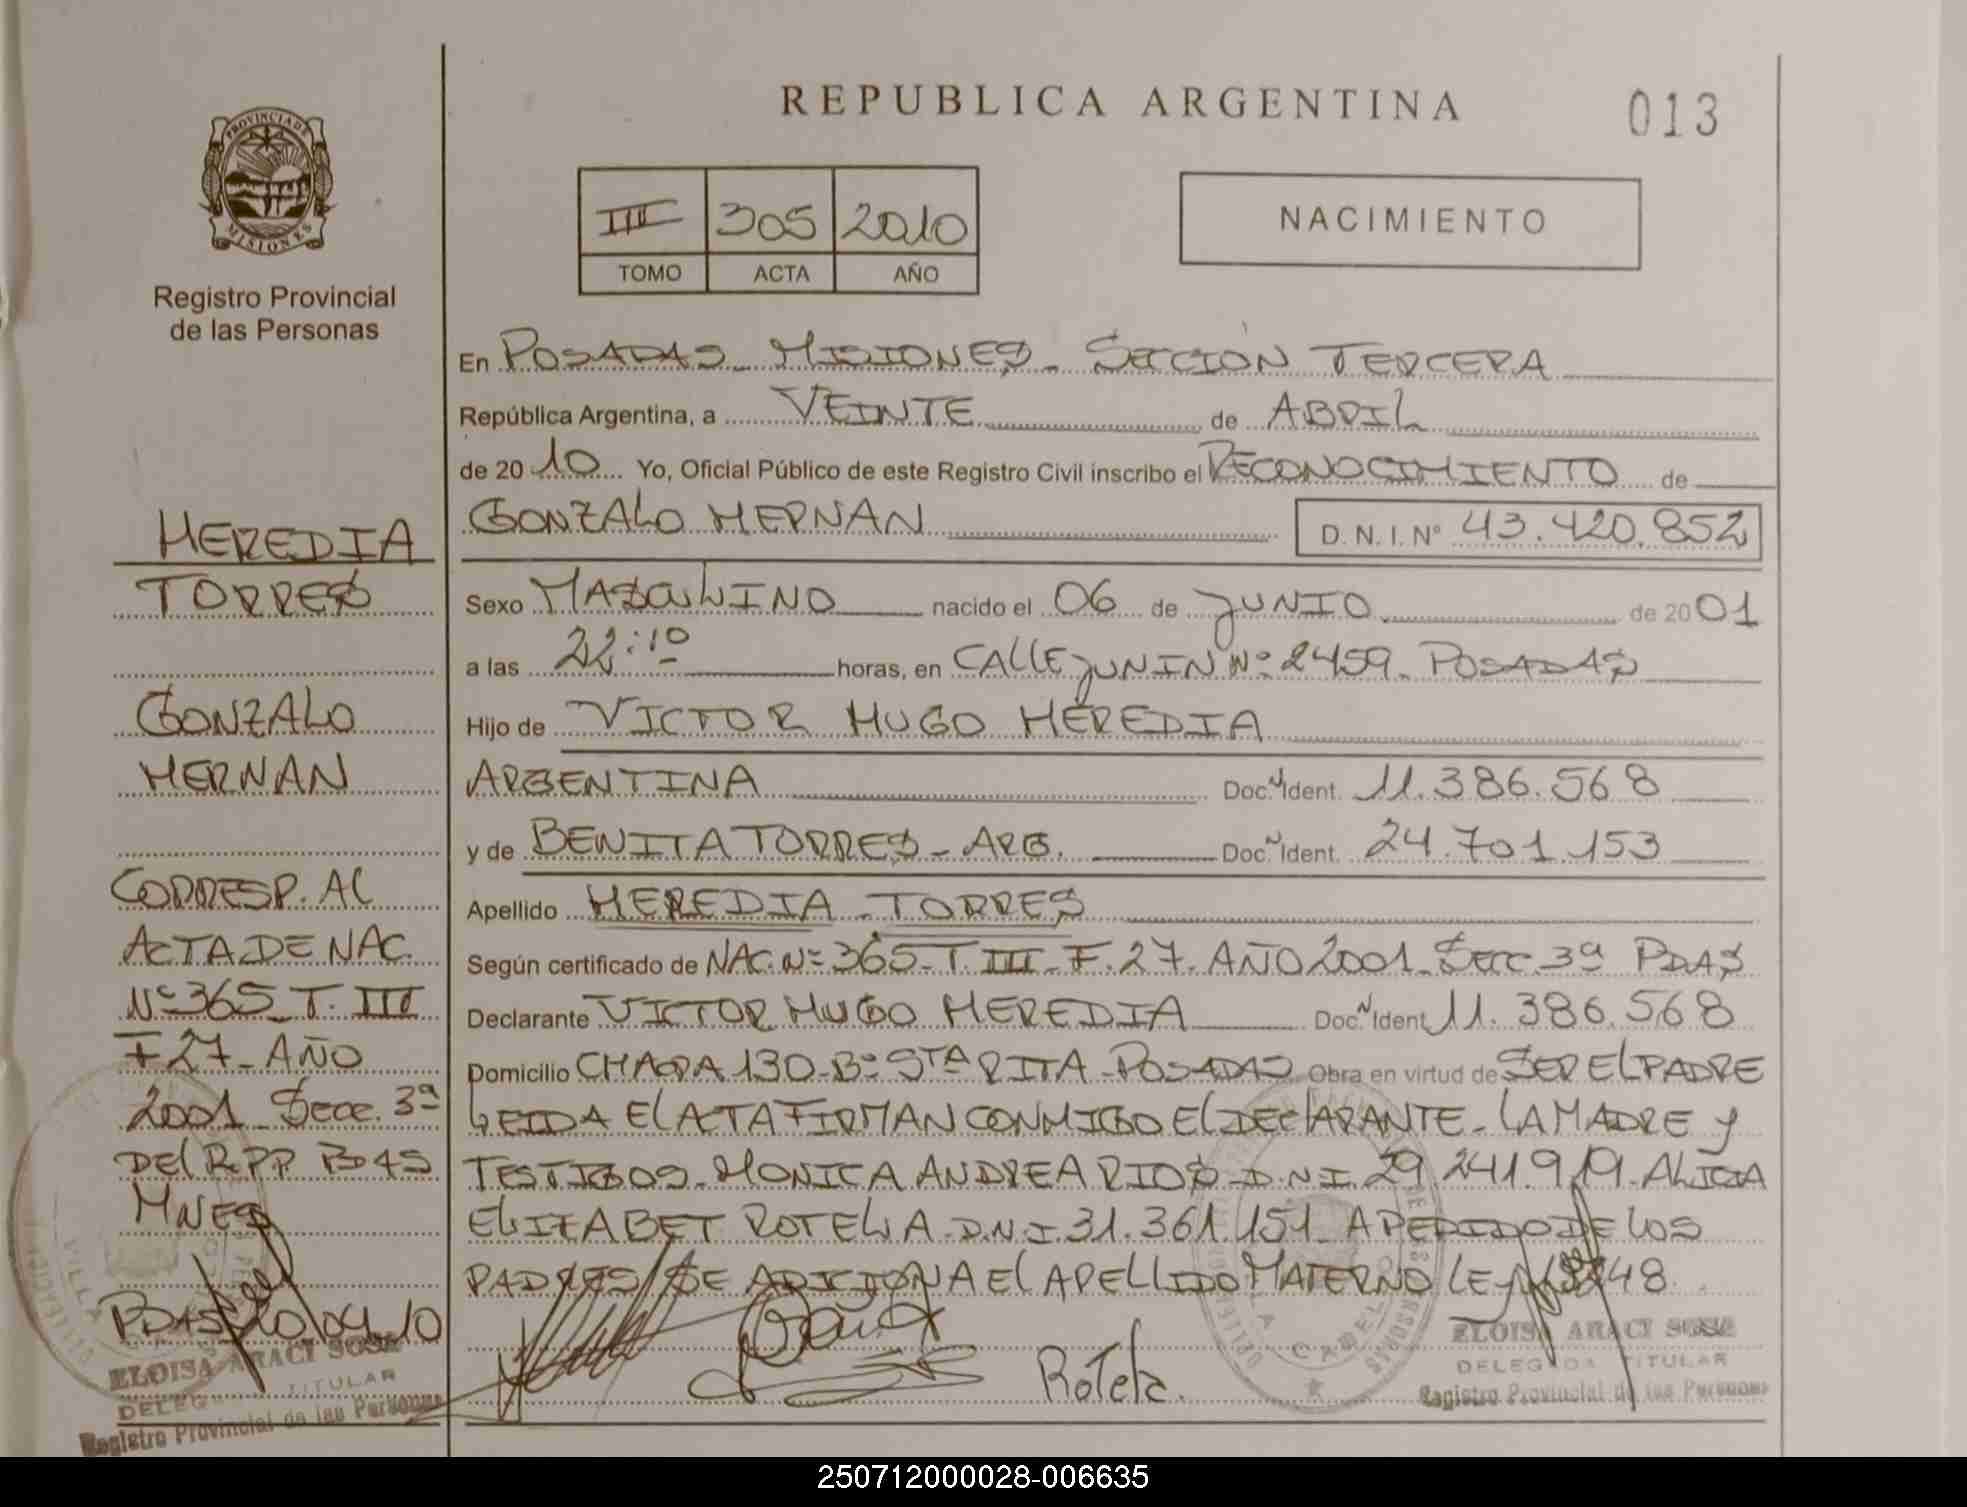 REPUBLICA ARGENTINA
013
PROVINCIA DE
MISIONES
Registro Provincial
de las Personas
III 305 2010
TOMO ACTA AÑO
NACIMIENTO
En POSADAS - MISIONES - SECCION TERCERA
República Argentina, a VEINTE de ABRIL
de 2010 Yo, Oficial Público de este Registro Civil inscribo el RECONOCIMIENTO de
GONZALO HERNAN D.N.I.Nº 43.420.852
Sexo MASCULINO nacido el 06 de JUNIO de 2001
a las 22:10 horas, en CALLE JUNIN Nº 2459 - POSADAS
Hijo de VICTOR HUGO HEREDIA
ARGENTINA Doc.N Ident. 11.386.568
y de BENITA TORRES - ARG. Doc.N Ident. 24.701.153
Apellido HEREDIA - TORRES
Según certificado de NAC. Nº 365 - T. III - F. 27 - AÑO 2001 - SECC. 3ª PDAS
Declarante VICTOR HUGO HEREDIA Doc.N Ident 11.386.568
Domicilio CHACRA 130 - Bº STA RITA - POSADAS Obra en virtud de SER EL PADRE
LEIDA EL ACTA FIRMAN CONMIGO EL DECLARANTE - LA MADRE y
TESTIGOS - MONICA ANDREA RIOS D.N.I. 29.241.919 - ALICIA
ELIZABET ROTELA D.N.I. 31.361.151 - A PEDIDO DE LOS
PADRES SE ADICIONA EL APELLIDO MATERNO LEY 18248
Rotela.
ELOISA ARACI SOSA
DELEGADA TITULAR
Registro Provincial de las Personas
HEREDIA
TORRES
GONZALO
HERNAN
CORRESP. AL
ACTA DE NAC.
Nº 365 - T. III
F 27 - AÑO
2001 - Secc. 3ª
DEL R.P.P. PDAS
MNES
PDAS 20/04/10
ELOISA ARACI SOSA
DELEG TITULAR
Registro Provincial de las Personas
250712000028-006635